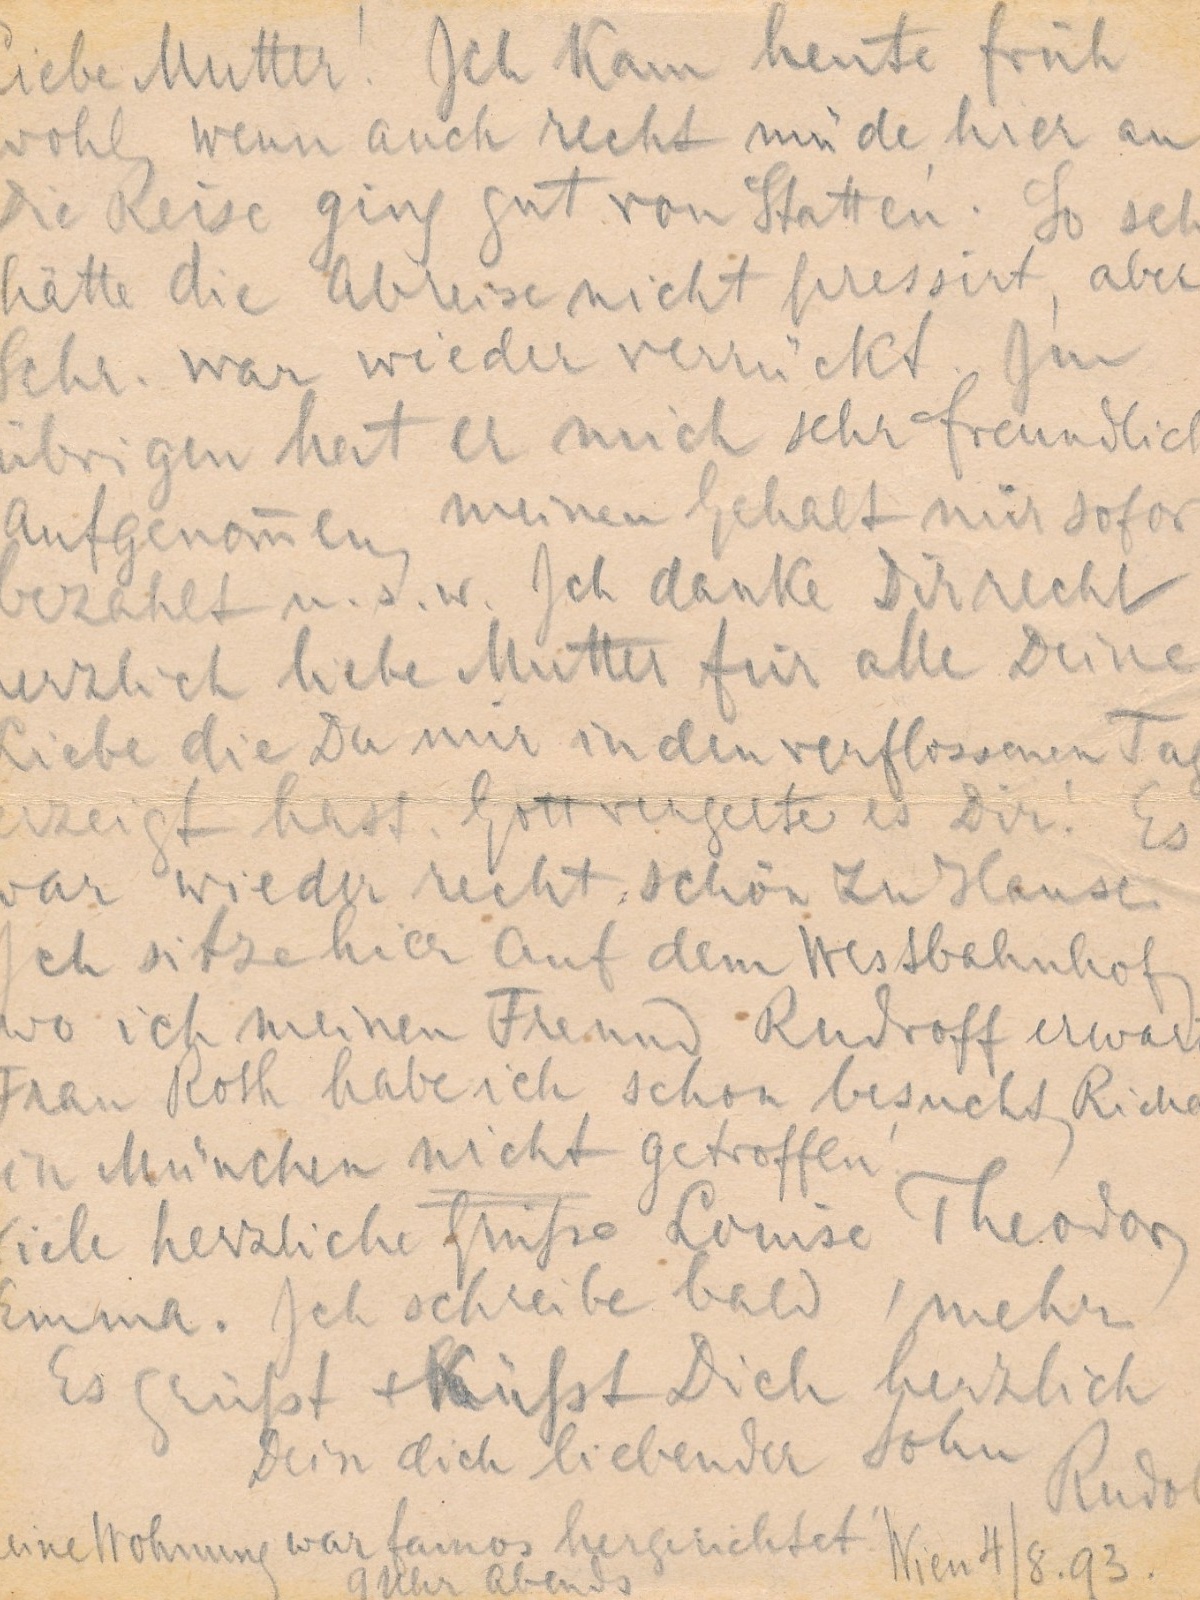 Liebe Mutter! Ich kam heute früh
wohl, wenn auch recht müde, hier an
Die Reise ging gut von Statten. So seh
hätte die Abreise nicht pressirt, aber
Schr. war wieder verrückt. Im
übrigen hat er mich sehr freundlich
Aufgenom̄en, meinen Gehalt mir sofor
bezahlt u.s.w. Ich danke Dir recht
herzlich liebe Mutter für alle Deine
Liebe die Du mir in den verflossenen Tag
erzeigt hast. Gott vergelte es Dir! Es
war wieder recht schön zu Hause.
Ich sitze hier auf dem Westbahnhof,
wo ich meinen Freund Rudroff erwart
Frau Roth habe ich schon besucht, Richa
in München nicht getroffen!
Viele herzliche Grüße Louise Theodor,
Emma. Ich schreibe bald mehr
Es grüßt + küßt Dich herzlich
Dein dich liebender Sohn
Rudol
eine Wohnung war famos hergerichtet!
9 Uhr Abends
Wien 4/8.93.